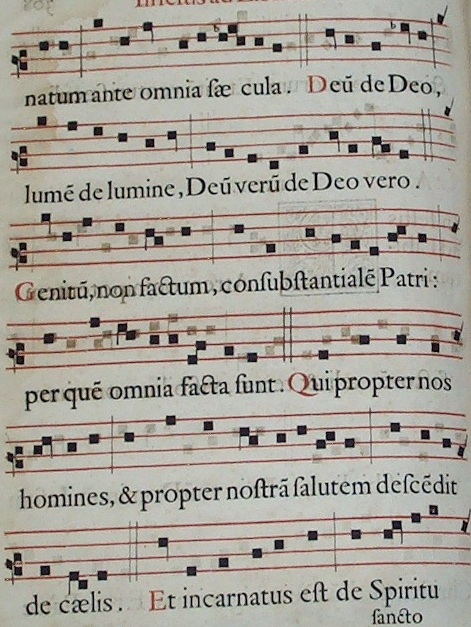 natum ante omnia sæ cula. Deū de Deo,
lumē de lumine, Deū verū de Deo vero.
Genitū, non factum, conſubſtantialē Patri:
per quē omnia facta ſunt. Qui propter nos
homines, & propter noſtrā ſalutem deſcēdit
de cælis. Et incarnatus eſt de Spiritu
ſancto